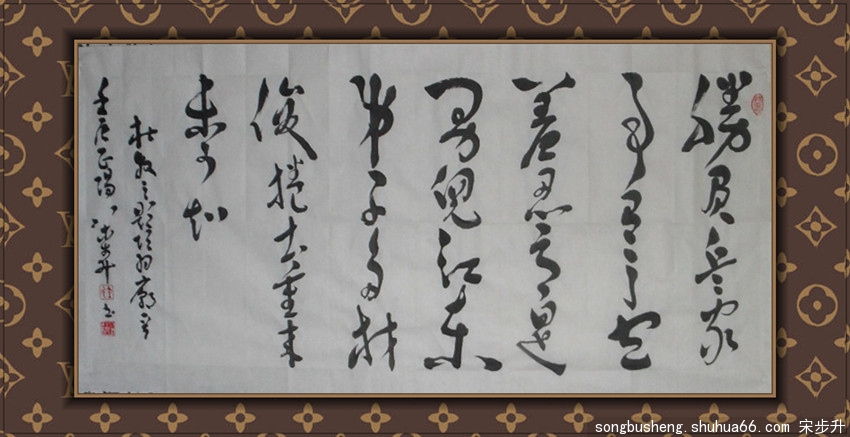 勝負兵家
事不期包
羞忍耻是
男兒江東
弟子多材
俊捲土重来
未可知
杜牧之题
壬辰正陽 宋步升 书
songbusheng.shuhua66.com 宋步升